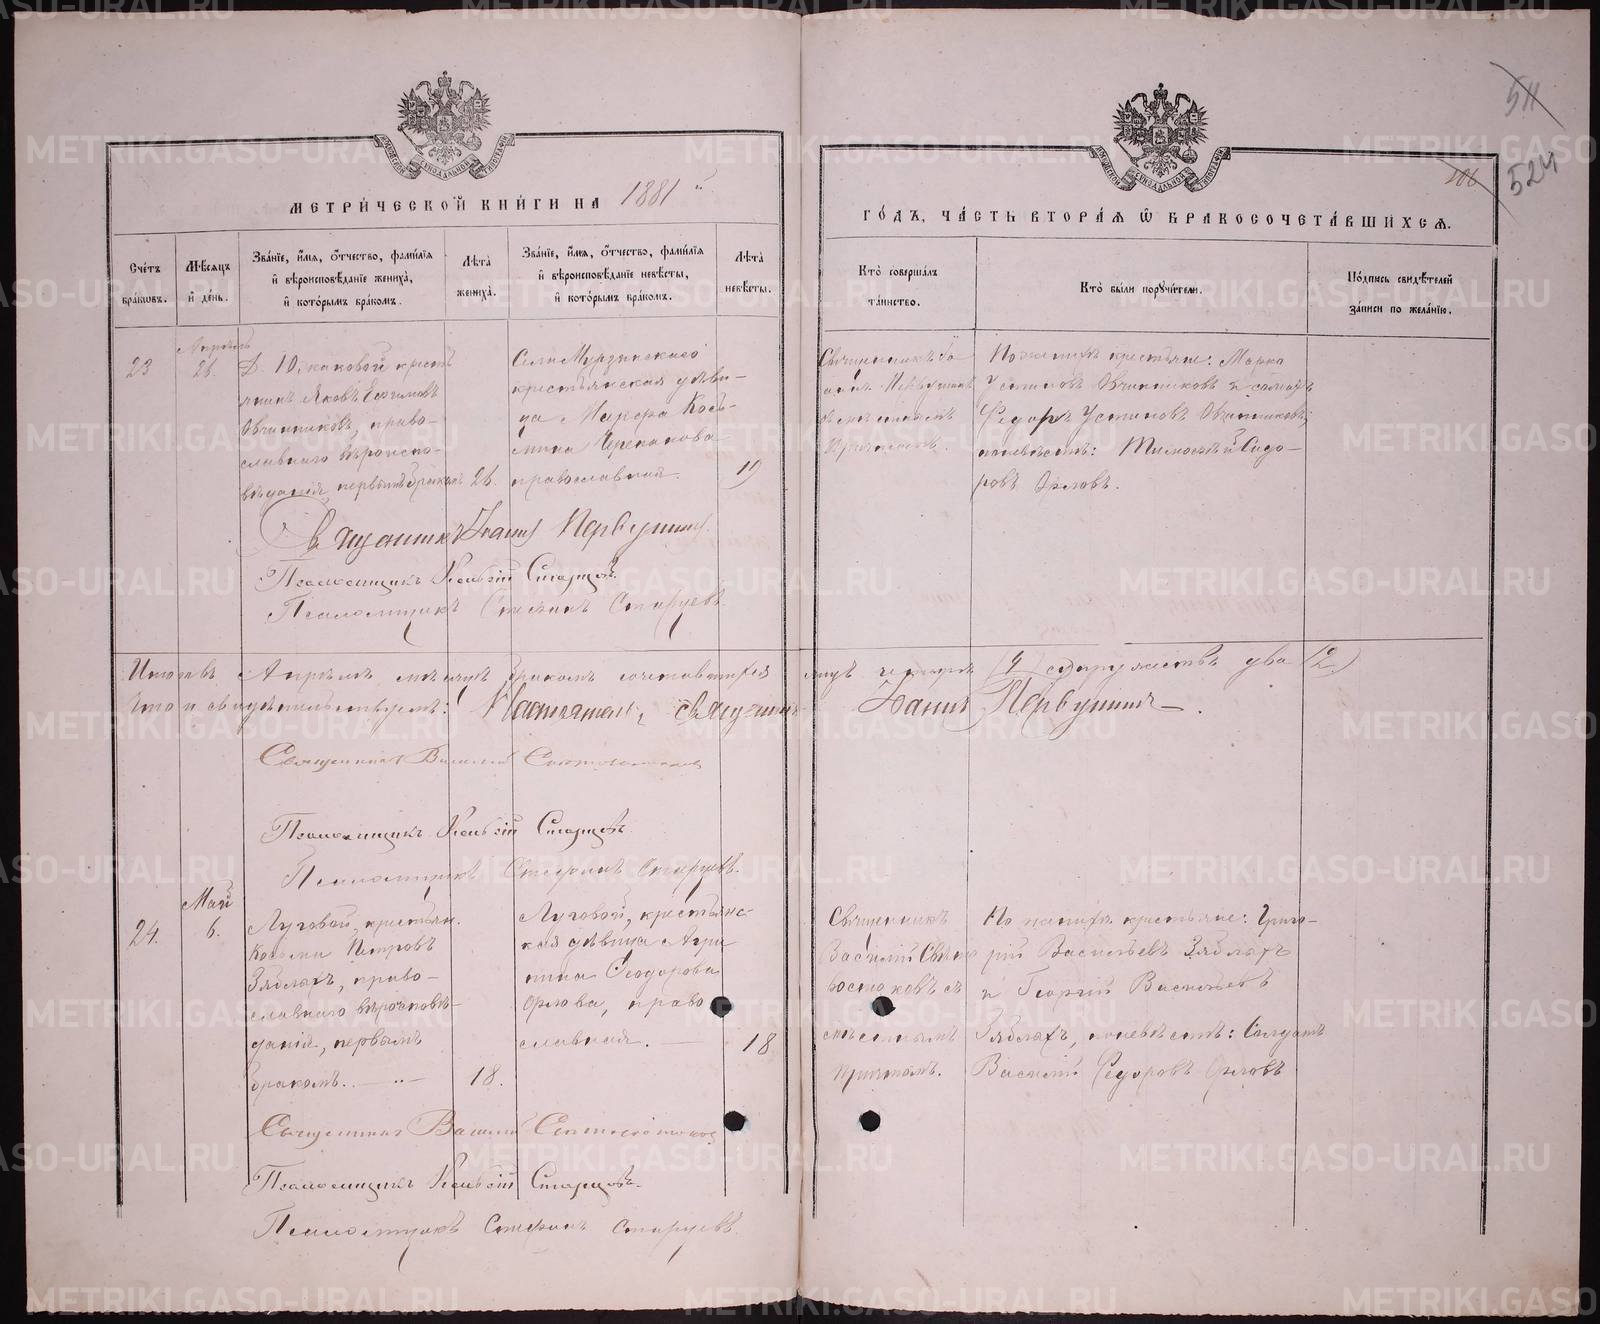 511
106
524
МЕТРИЧЕСКОЙ КНИГИ НА 1881 й
ГОДЪ, ЧАСТЬ ВТОРАЯ Ѡ БРАКОСОЧЕТАВШИХСЯ.
Счетъ браковъ.
Мѣсяцъ и день.
Званіе, имя, отчество, фамилія
и вѣроисповѣданіе жениха,
и которымъ бракомъ.
Лѣта жениха.
Званіе, имя, отчество, фамилія
и вѣроисповѣданіе невѣсты,
и которымъ бракомъ.
Лѣта невѣсты.
Кто совершалъ таинство.
Кто были поручители.
Подпись свидѣтелей записи по желанію.
23
Апрѣль
26.
Д. Южаковой кресть
янинъ Яковъ Ефимовъ
Овчинниковъ, право-
славнаго вѣроиспо-
вѣданія, первымъ бракомъ
26.
Села Мурзинскаго
крестьянская дѣви-
ца Марфа Козь-
мина Черпакова
православная.
19
Священникъ Іо
аннъ Первушинъ
причтомъ.
По женихѣ крестьяне: Марко
Устиновъ Овчинниковъ и
Ѳедоръ Устиновъ Овчинниковъ;
по невѣстѣ: Тимофей Сидо-
ровъ Орловъ.
Священникъ Іоаннъ Первушинъ
Псаломщикъ Старцевъ.
Псаломщикъ Стефанъ Старцевъ
Итого въ Апрѣлѣ мѣсяцѣ бракомъ сочетавшихся лицъ четыре (4) супружествъ два (2)
Что и свидѣтельствуемъ: Настоятель, священникъ Іоаннъ Первушинъ.
Священникъ Василій Святовостоковъ
Псаломщикъ Старцевъ
Псаломщикъ Стефанъ Старцевъ.
24.
Май
6.
Луговой, крестьян.
Козьма Петровъ
Зяблахъ, право-
славнаго вѣроисповѣ-
данія, первымъ
бракомъ.
18.
Луговой, крестьянс-
кая дѣвица Агри
пина Ѳеодорова
Орлова, право
славная.
18
Священникъ
Василій Свято
востоковъ съ
мѣстнымъ
причтомъ.
По женихѣ крестьяне: Григо-
рій Васильевъ Зяблахъ
и Георгій Васильевъ
Зяблахъ, по невѣстѣ: Солдатъ
Василій Ѳедоровъ Орловъ
Священникъ Василій Святовостоковъ
Псаломщикъ Старцевъ.
Псаломщикъ Стефанъ Старцевъ
METRIKI.GASO-URAL.RU